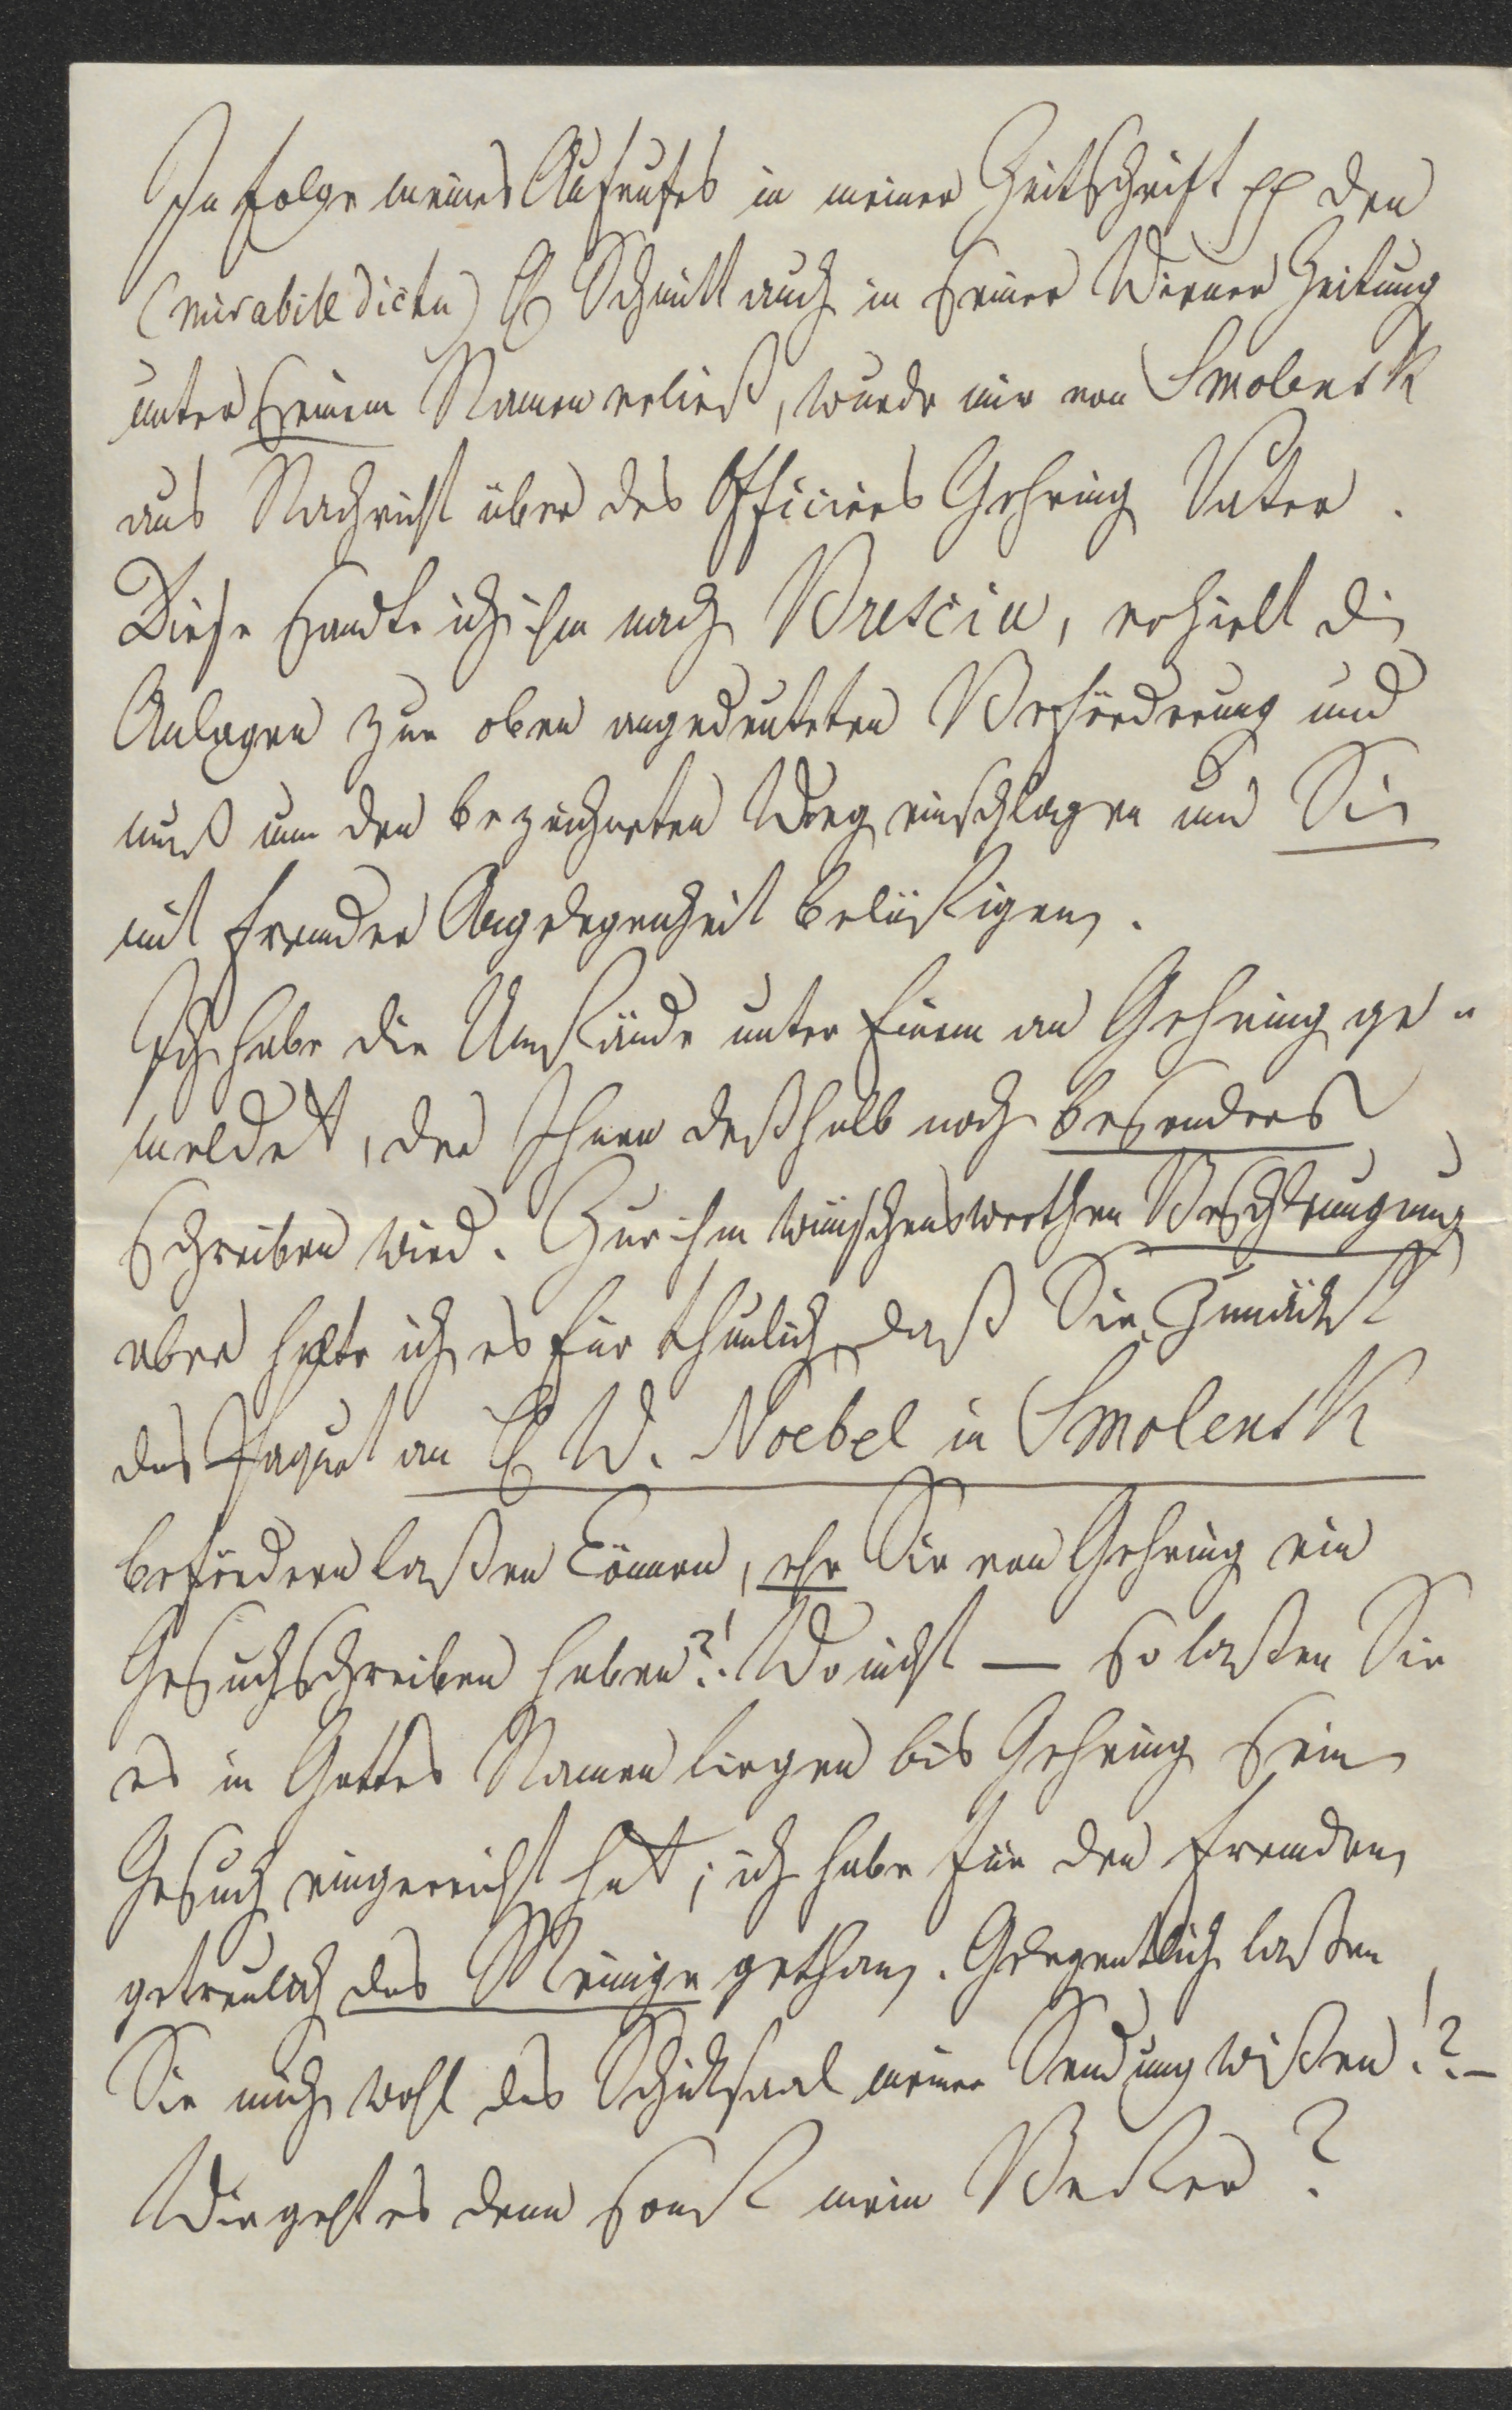 In Folge meines Aufrufes in meiner Zeitschrift pp den
(mirabile dictu) H Schmitt auch in seiner Wiener Zeitung
unter seinem Namen erließ, wurde mir von Smolensk
aus Nachricht über des Officiers Gehring Vater.
Diese sandte ich ihm nach Brescia, erhielt die
Anlagen zur oben angedeuteten Beförderung und
muß nun den bezeichneten Weg einschlagen und Sie
mit fremder Angelegenheit belästigen.
Ich habe die Umstände unter Einem an Gehring ge-
meldet, der Ihnen deßhalb noch besonders
schreiben wird. Zur ihm wünschenswerthen Beschleunigung
aber halte ich es für thunlich, daß Sie zunächst
das Paquet an H W. Noebel in Smolensk
befördern laßen können, ehe Sie von Gehring ein
Gesuchschreiben haben?! Wo nicht — so laßen Sie
es in Gottes Namen liegen bis Gehring sein
Gesuch eingereicht hat; ich habe für den Fremden
getreulich das Meinige gethan. Gelegentlich laßen
Sie mich wohl das Schicksaal meiner Sendung wißen!?—
Wie geht es denn sonst mein Becker?